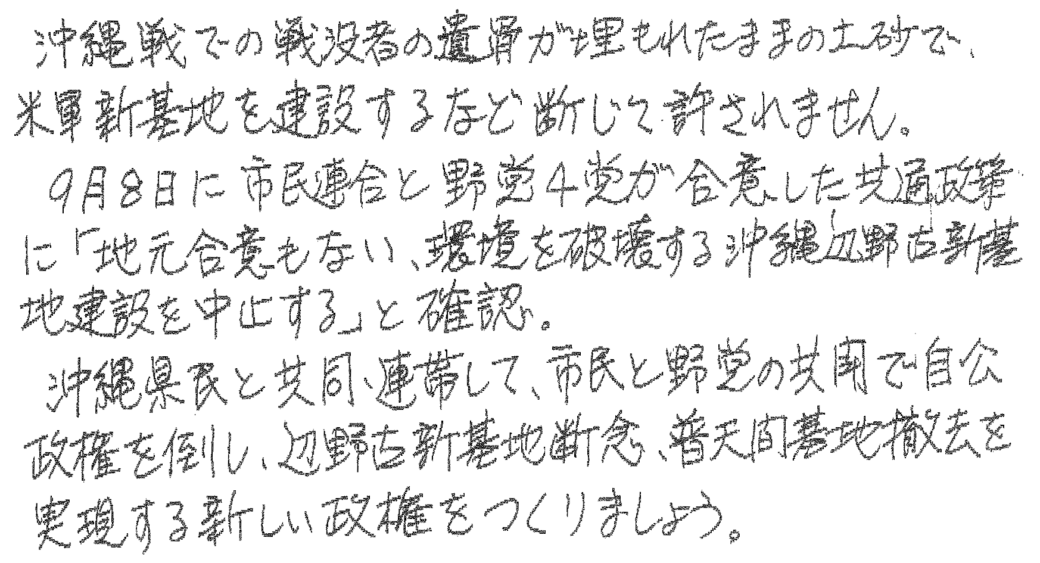 沖縄戦での戦没者の遺骨が埋もれたままの土砂で、
米軍新基地を建設するなど断じて許されません。
9月8日に市民連合と野党4党が合意した共通政策
に「地元合意もない、環境を破壊する沖縄辺野古新基
地建設を中止する」と確認。
沖縄県民と共同、連帯して、市民と野党の共闘で自公
政権を倒し、辺野古新基地断念、普天間基地撤去を
実現する新しい政権をつくりましょう。